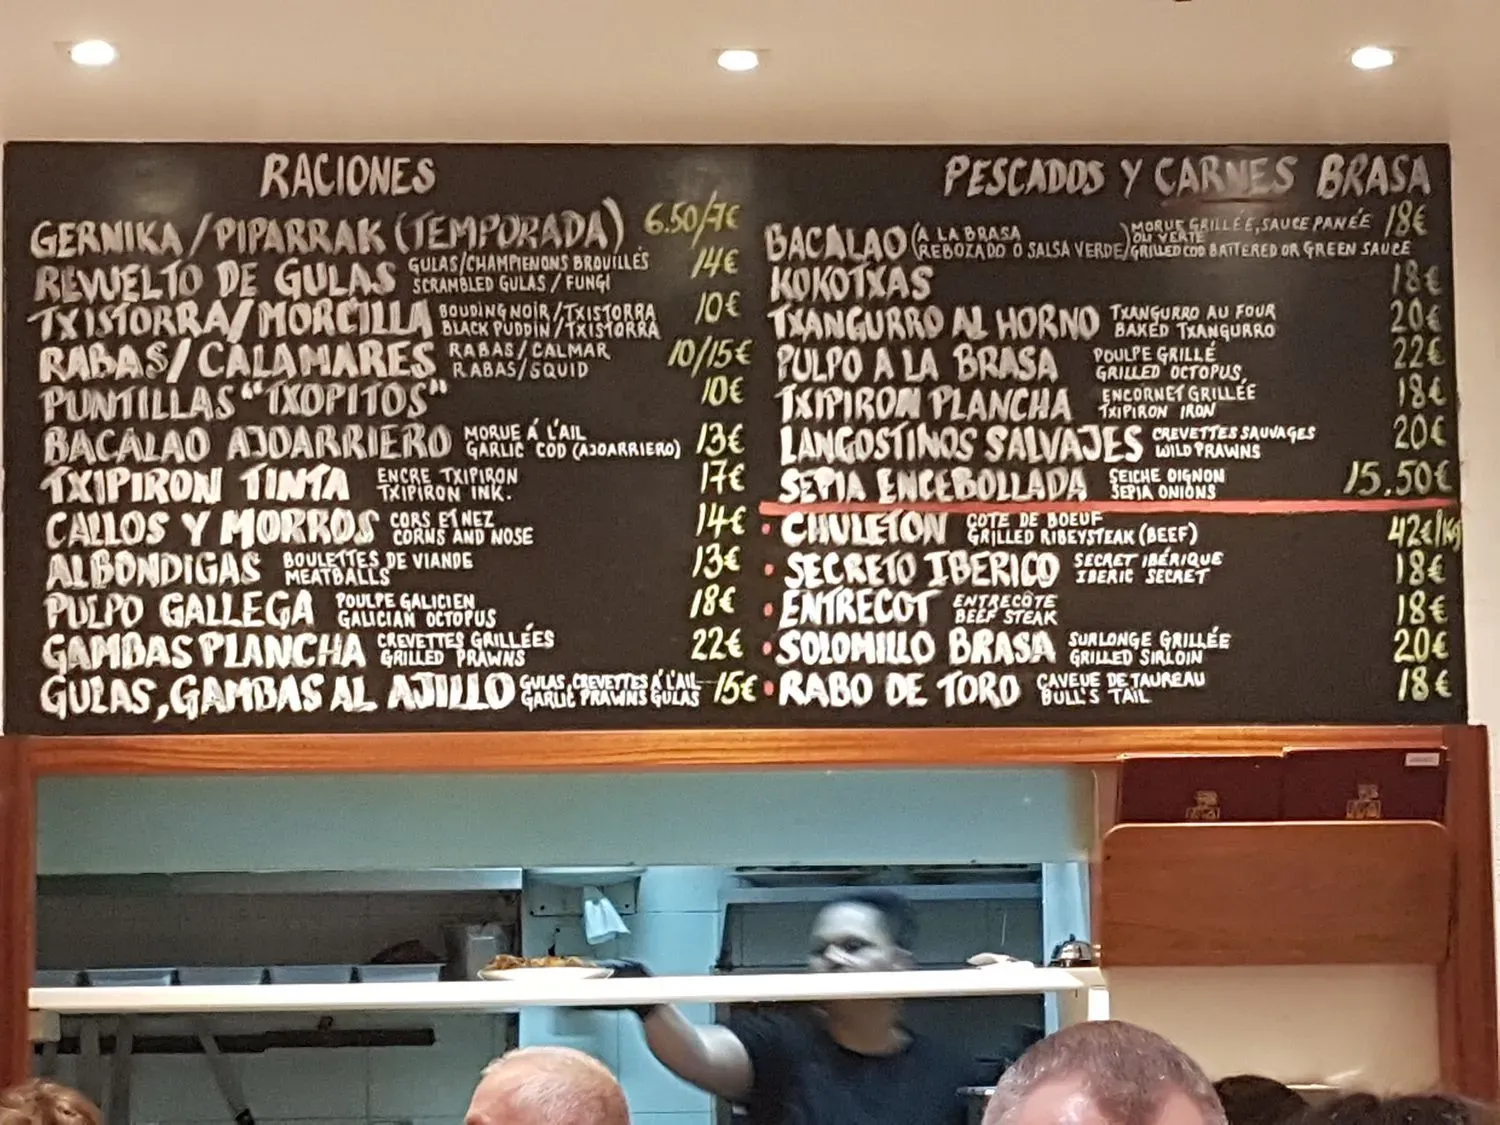 RACIONES
GERNIKA/PIPARRAK (TEMPORADA) 6.50/7€
REVUELTO DE GULAS GULAS/CHAMPIENONS BROUILLÉS 14€
SCRAMBLED GULAS / FUNGI
TXISTORRA/MORCILLA BOUDING NOIR/TXISTORRA 10€
BLACK PUDDIN/TXISTORRA
RABAS/CALAMARES RABAS/CALMAR 10/15€
RABAS/SQUID
PUNTILLAS "TXOPITOS" 10€
BACALAO AJOARRIERO MORUE Á L'AIL 13€
GARLIC COD (AJOARRIERO)
TXIPIRON TINTA ENCRE TXIPIRON 17€
TXIPIRON INK.
CALLOS Y MORROS CORS ET NEZ 14€
CORNS AND NOSE
ALBONDIGAS BOULETTES DE VIANDE 13€
MEATBALLS
PULPO GALLEGA POULPE GALICIEN 18€
GALICIAN OCTOPUS
GAMBAS PLANCHA CREVETTES GRILLÉES 22€
GRILLED PRAWNS
GULAS, GAMBAS AL AJILLO GULAS, CREVETTES Á L'AIL 15€
GARLIC PRAWNS GULAS
PESCADOS Y CARNES BRASA
BACALAO (A LA BRASA MORUE GRILLÉE, SAUCE PANÉE 18€
REBOZADO O SALSA VERDE) OU VERTE
GRILLED COD BATTERED OR GREEN SAUCE
KOKOTXAS 18€
TXANGURRO AL HORNO TXANGURRO AU FOUR 20€
BAKED TXANGURRO
PULPO A LA BRASA POULPE GRILLÉ 22€
GRILLED OCTOPUS,
TXIPIRON PLANCHA ENCORNET GRILLÉE 18€
TXIPIRON IRON
LANGOSTINOS SALVAJES CREVETTES SAUVAGES 20€
WILD PRAWNS
SEPIA ENCEBOLLADA SEICHE OIGNON 15.50€
SEPIA ONIONS
CHULETON COTE DE BOEUF 42€/KG
GRILLED RIBEYSTEAK (BEEF)
SECRETO IBERICO SECRET IBÉRIQUE 18€
IBERIC SECRET
ENTRECOT ENTRECÔTE 18€
BEEF STEAK
SOLOMILLO BRASA SURLONGE GRILLÉE 20€
GRILLED SIRLOIN
RABO DE TORO CAVEUE DE TAUREAU 18€
BULL'S TAIL